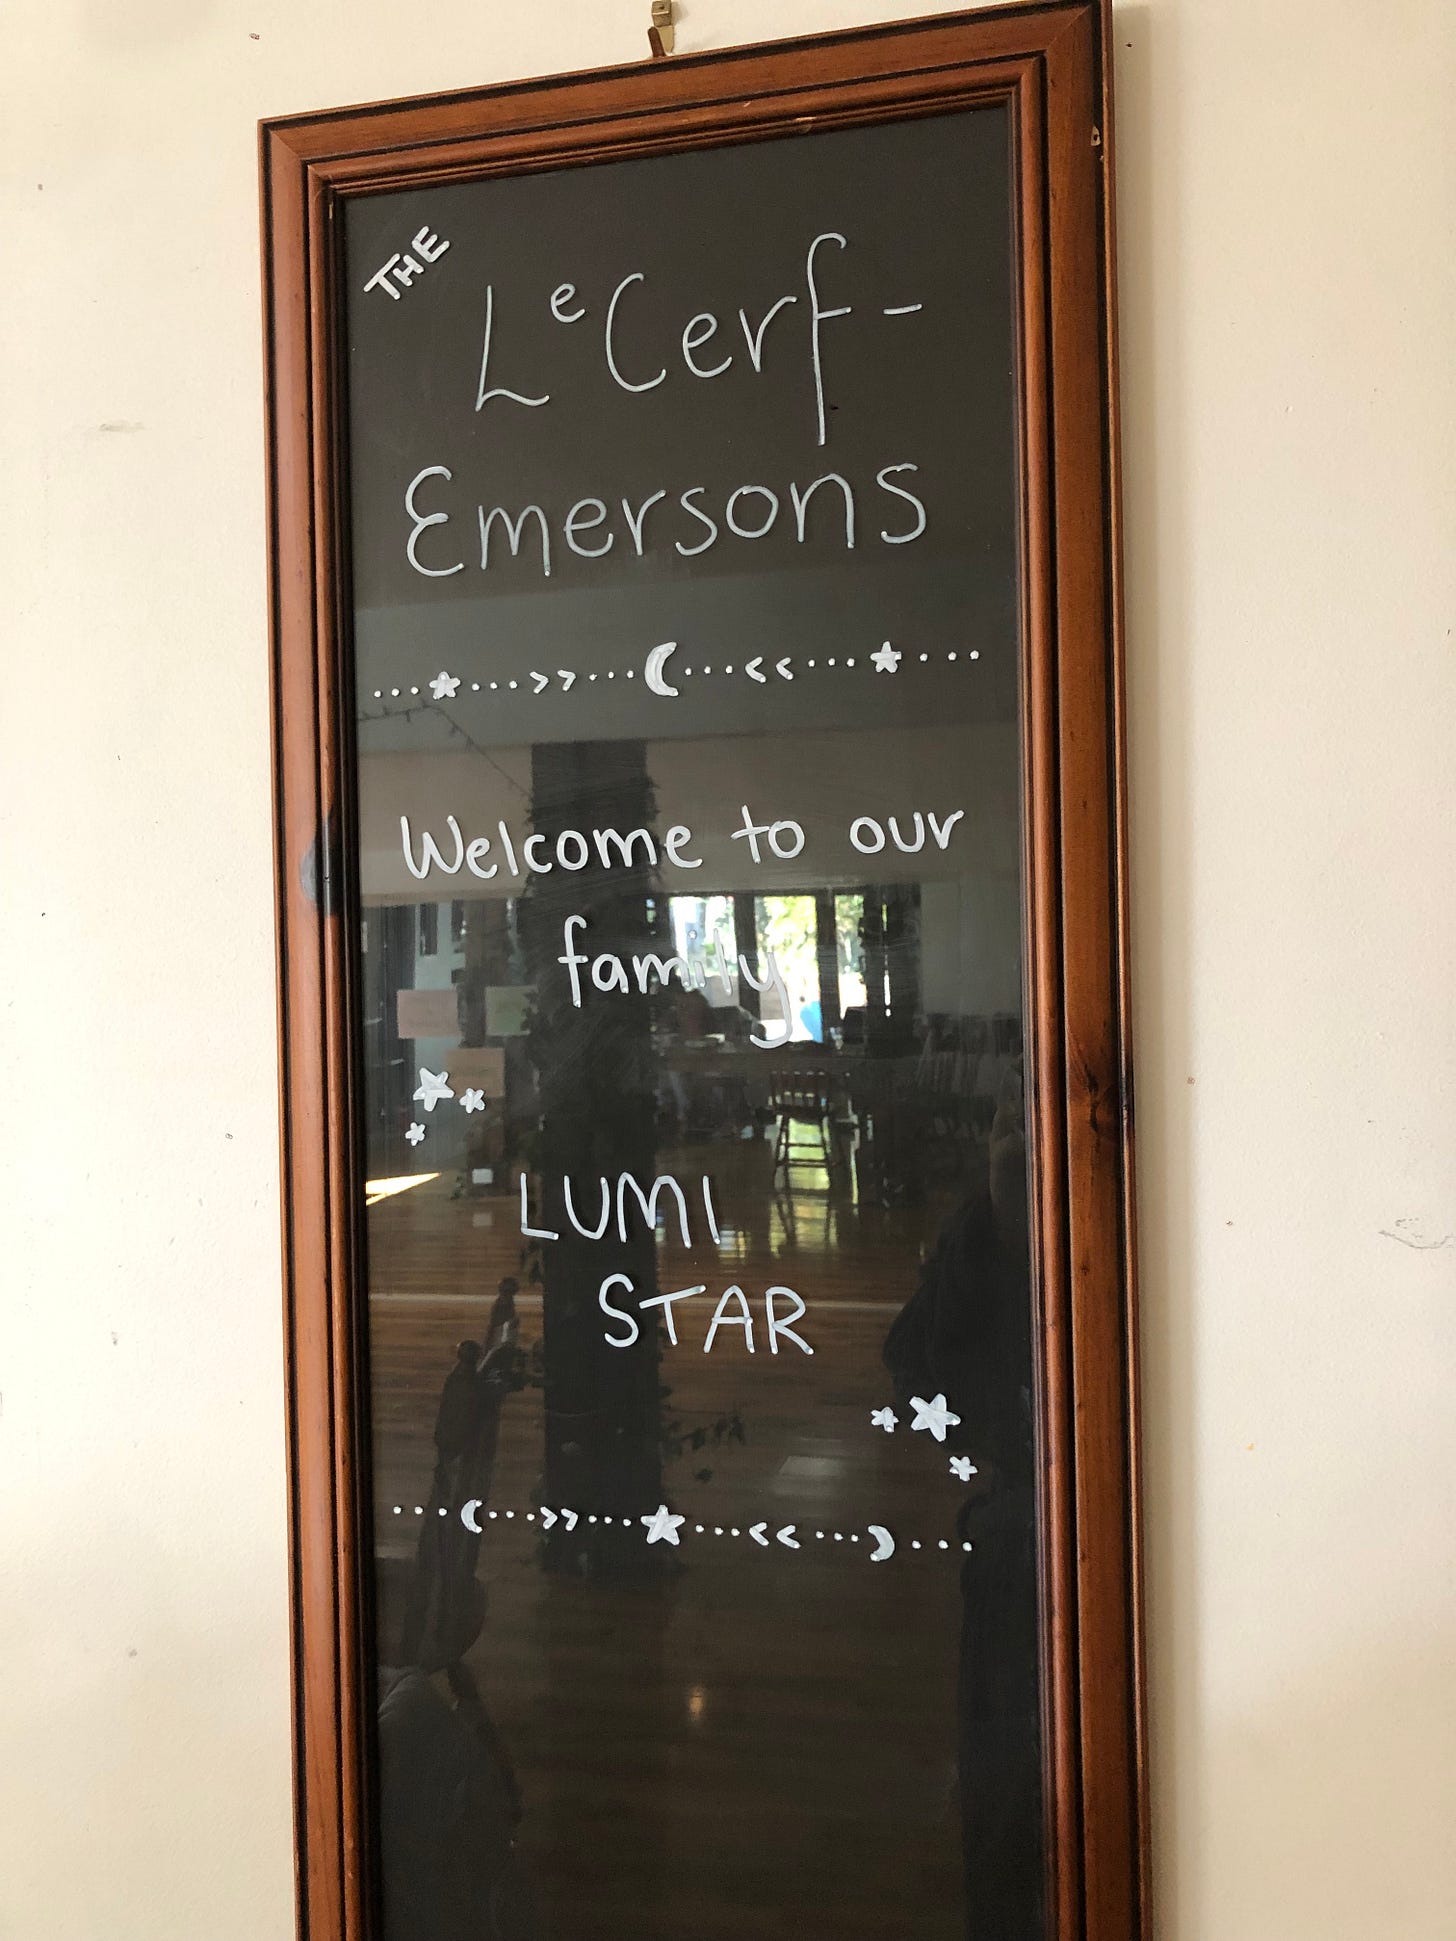 THE
LeCerf-
Emersons
Welcome to our
family
LUMI
STAR